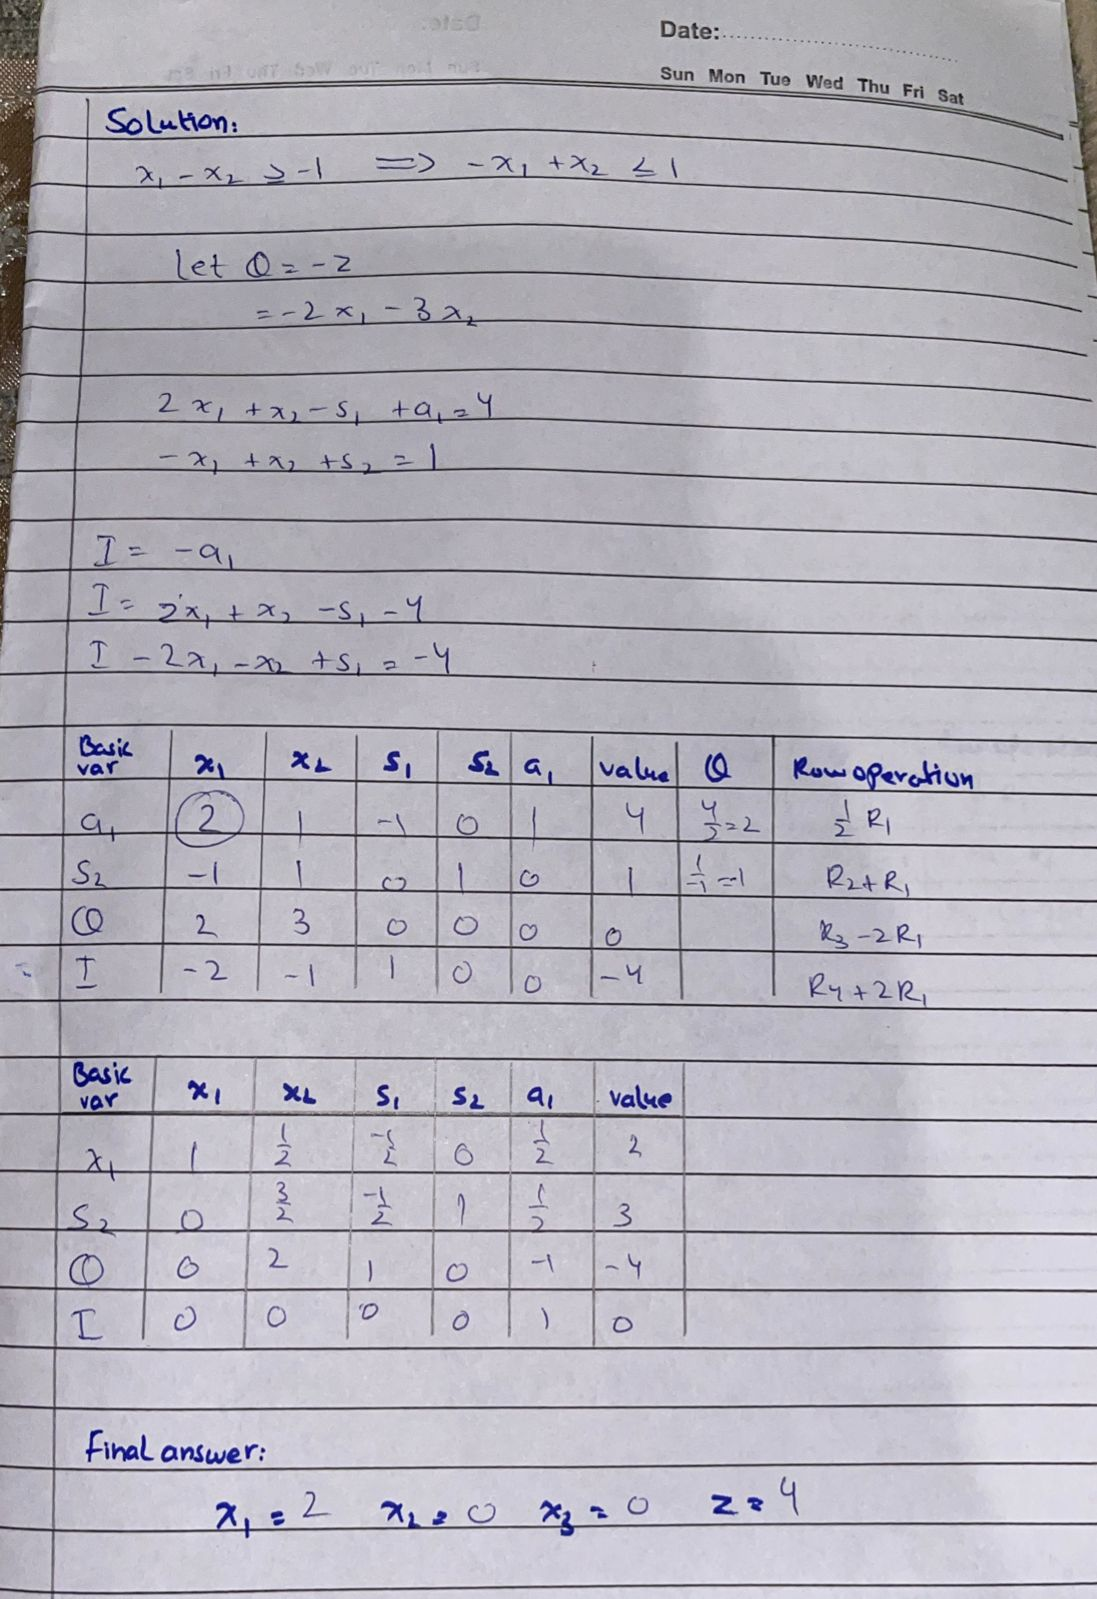 Date:
Sun Mon Tue Wed Thu Fri Sat
Solution:
x₁ - x₂ ≥ -1 ⇒ -x₁ + x₂ ≤ 1
Let Q = -z
= -2x₁ - 3x₂
2x₁ + x₂ - s₁ + a₁ = 4
-x₁ + x₂ + s₂ = 1
I = -a₁
I = 2x₁ + x₂ - s₁ - 4
I - 2x₁ - x₂ + s₁ = -4
Basic var x₁ x₂ s₁ s₂ a₁ value Q Row operation
a₁ 2 1 -1 0 1 4 4/2=2 1/2 R₁
s₂ -1 1 0 1 0 1 1/-1=-1 R₂+R₁
Q 2 3 0 0 0 0 R₃-2R₁
I -2 -1 1 0 0 -4 R4+2R₁
Basic var x₁ x₂ s₁ s₂ a₁ value
x₁ 1 1/2 -1/2 0 1/2 2
s₂ 0 3/2 -1/2 1 1/2 3
Q 0 2 1 0 -1 -4
I 0 0 0 0 1 0
Final answer:
x₁ = 2 x₂ = 0 x₃ = 0 z = 4